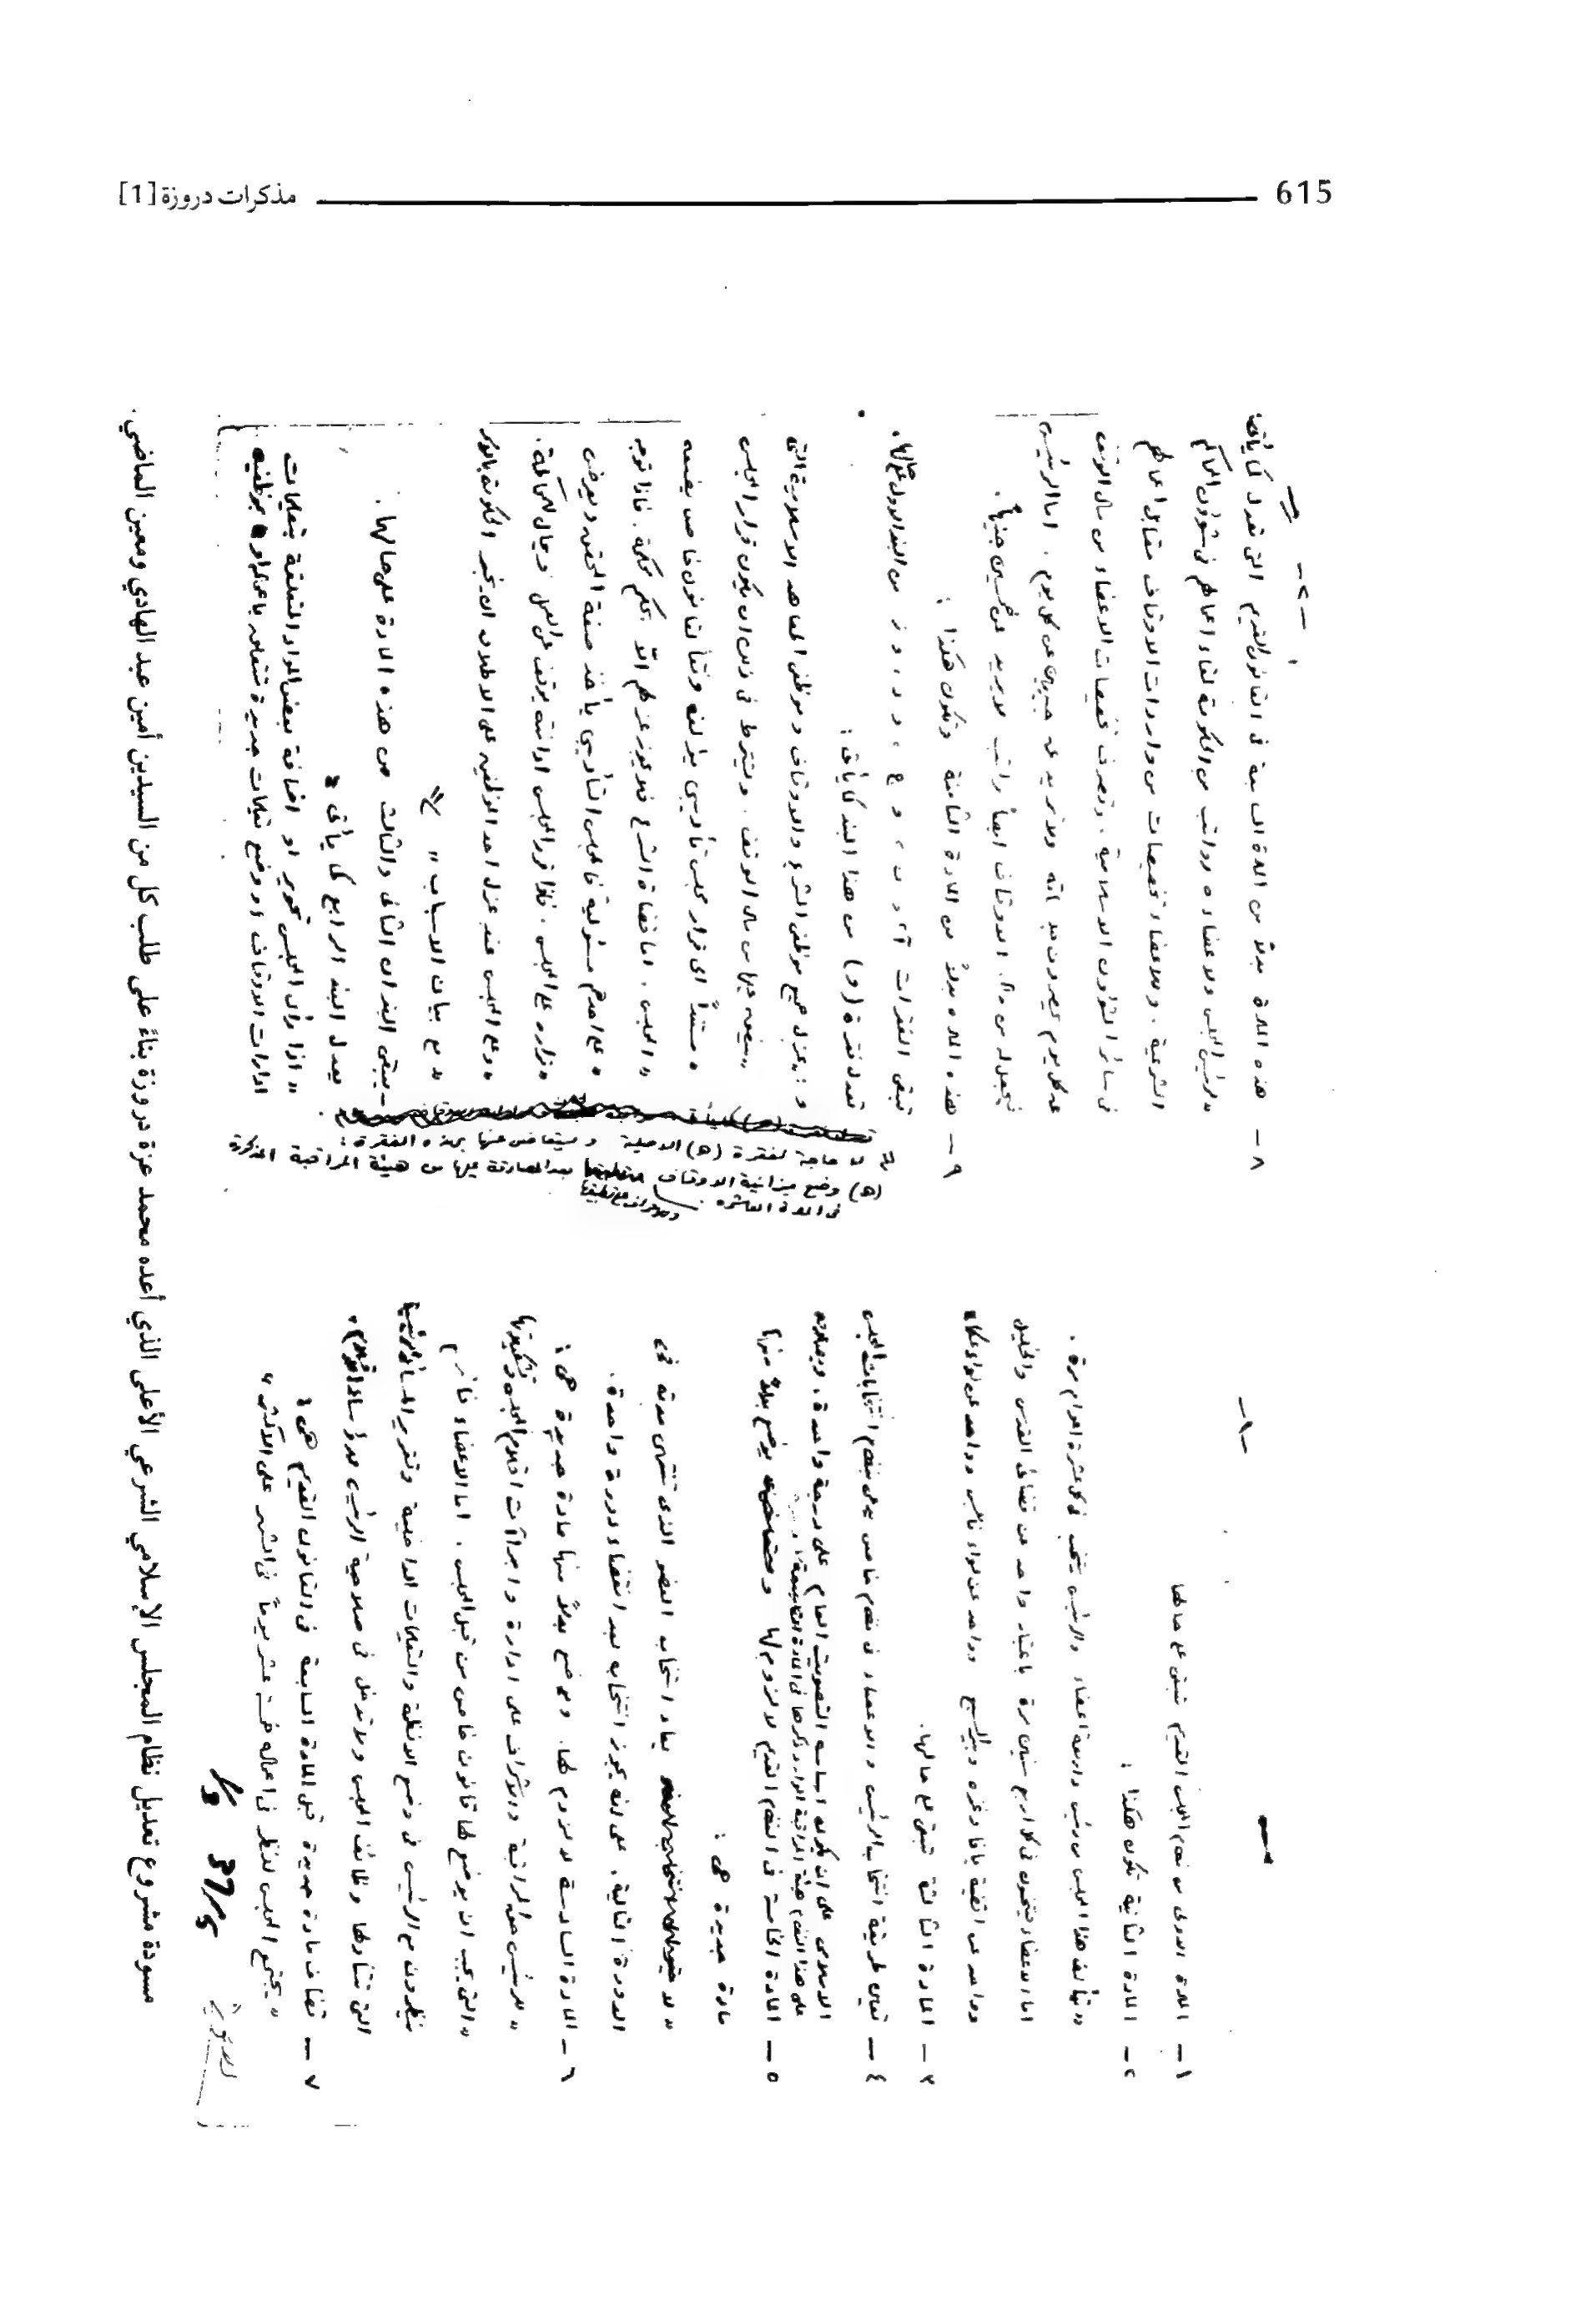 615
مذكرات دروزة [1]
-١-
١- المادة الاولى من نظام المجلس القديم تبقى على حالها
٢- المادة الثانية تكون هكذا :
«يتألف هذا المجلس من رئيس واربعة اعضاء والرئيس ينتخب في كل عشرة اعوام مرة.
اما الاعضاء فينتخبون في كل اربع سنين مرة باعتبار واحد عن قضائى القدس والخليل
وواحد عن اقضية يافا وغزه وبئر السبع وواحد عن لواء نابلس وواحد عن لواء عكا»
٣- المادة الثالثة تبقى على حالها.
٤- تعين طريقة انتخاب الرئيس والاعضاء في نظام خاص يدعى نظام انتخابات المجلس
الاسلامي على ان يكون اساسه التصويت العام على درجة واحدة.
على هذا النظام هيئة المراقبة الوارد ذكرها في المادة
٥- المادة الخامسة في النظام القديم لا لزوم لها ويوضع بدلاً منها
مادة جديدة هى :
يعاد انتخاب العضو الذى تنتهى مدته في
الدورة التالية. على انه يجوز انتخابه بعد انقضاء دورة واحدة.
٦- المادة السادسة لا لزوم لها. ويوضع بدلاً منها مادة جديدة هى :
«للرئيس حق المراقبة والاشراف على ادارة واجراآت اقلام المجلس وتشكيلاتها
«التي يجب ان يوضع لها قانون خاص من قبل المجلس. اما الاعضاء
ينظرون مع الرئيس في وضع الانظمة والتعليمات الداخلية وتقرير المسائل الرئيسية
التي تتناولها وظائف المجلس ولا تدخل في صلاحية الرئيس
٧- تضاف مادة جديدة قبل المادة السابعة في القانون القديم هى :
«يجتمع المجلس للنظر في اعماله خمسة عشر يوماً في الشهر على الاكثر»
-٢-
٨- هذه المادة بدلاً من المادة السابعة في القانون القديم التي تعدل كما يأتى
«لرئيس المجلس ولاعضاءه رواتب من الحكومة لقاء اعمالهم في شؤون المحاكم
الشرعية. وللاعضاء تخصيصات من واردات الاوقاف مقابل اعمالهم
في سائر الشؤون الاسلامية. وتصرف تخصيصات الاعضاء من مال الوقف
عن كل يوم يحضرون جلساته ولا تزيد عن جنيهين عن كل يوم. اما الرئيس
فيجعل له من مال الاوقاف ايضاً راتب لا يزيد عن خمسين جنيهاً.
٩- هذه المادة بدلاً من المادة الثامنة وتكون هكذا :
تبقى الفقرات آ و ب و ج و د و ز من البند الاول على حالها.
تعدل فقرة (و) من هذا البند كما يأتى :
و : «عزل جميع موظفى الشرع والاوقاف وموظفى المعاهد الاسلامية التي
«ينفق عليها من مال الوقف. ويشترط في ذلك ان يكون قرار المجلس
«مستنداً الى قرار مجلس تأديبي يؤلف وفقاً لقانون خاص يضعه
«المجلس. اما قضاة الشرع فلا يجوز عزلهم الا بحكم محكمة. فاذا توجه
«على احدهم مسئولية فالمجلس التأديبي يأخذ صفة المحقق ويعرض
«قراره على المجلس. فاذا قرر المجلس ادانته يوقف عن العمل ويحال للمحاكمة.
«وعلى المجلس عند عزل احد الموظفين على الاطلاق ان يخبر الحكومة بالامر
«مع بيان الاسباب»
- يبقى البندان الثانى والثالث من هذه المادة على حالها.
يعدل البند الرابع كما يأتى :
«اذا رأى المجلس تحوير او اضافة بعض المواد المتعلقة بتعليمات
ادارات الاوقاف او وضع تعليمات جديدة تتعلق
لا حاجة لفقرة (ه) الاصلية ويستعاض عنها بهذه الفقرة :
(ه) وضع ميزانية الاوقاف وتطبيقها بعد المصادقة عليها من هيئة المراقبة المذكورة
في المادة العاشرة
مسودة مشروع تعديل نظام المجلس الإسلامي الشرعي الأعلى الذي أعده محمد عزة دروزة بناءً على طلب كل من السيدين أمين عبد الهادي ومعين الماضي.